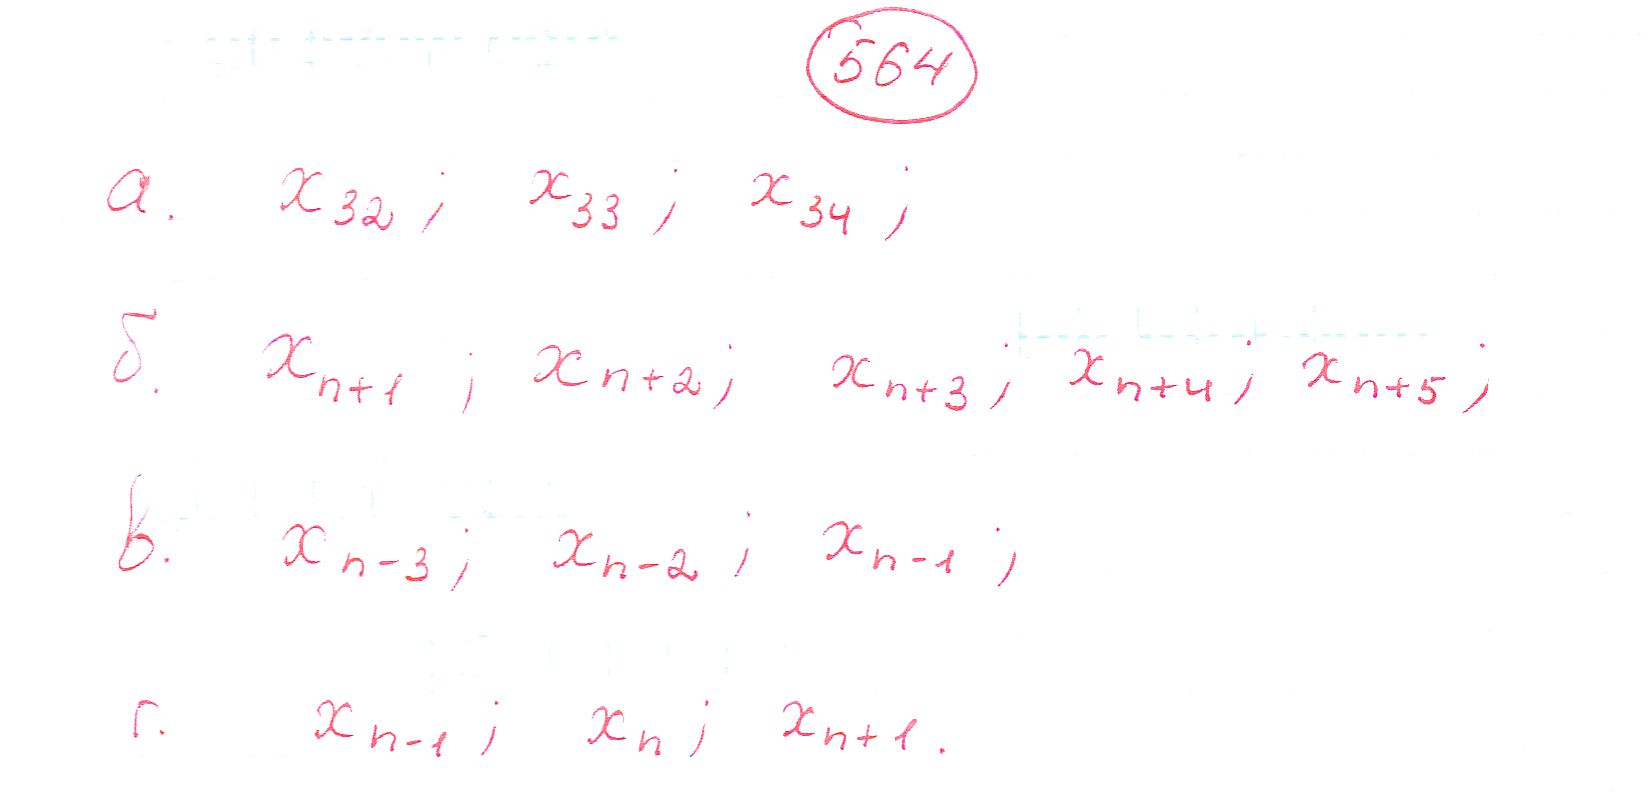 564
а. x₃₂; x₃₃; x₃₄;
б. xₙ₊₁; xₙ₊₂; xₙ₊₃; xₙ₊₄; xₙ₊₅;
в. xₙ₋₃; xₙ₋₂; xₙ₋₁;
г. xₙ₋₁; xₙ; xₙ₊₁.